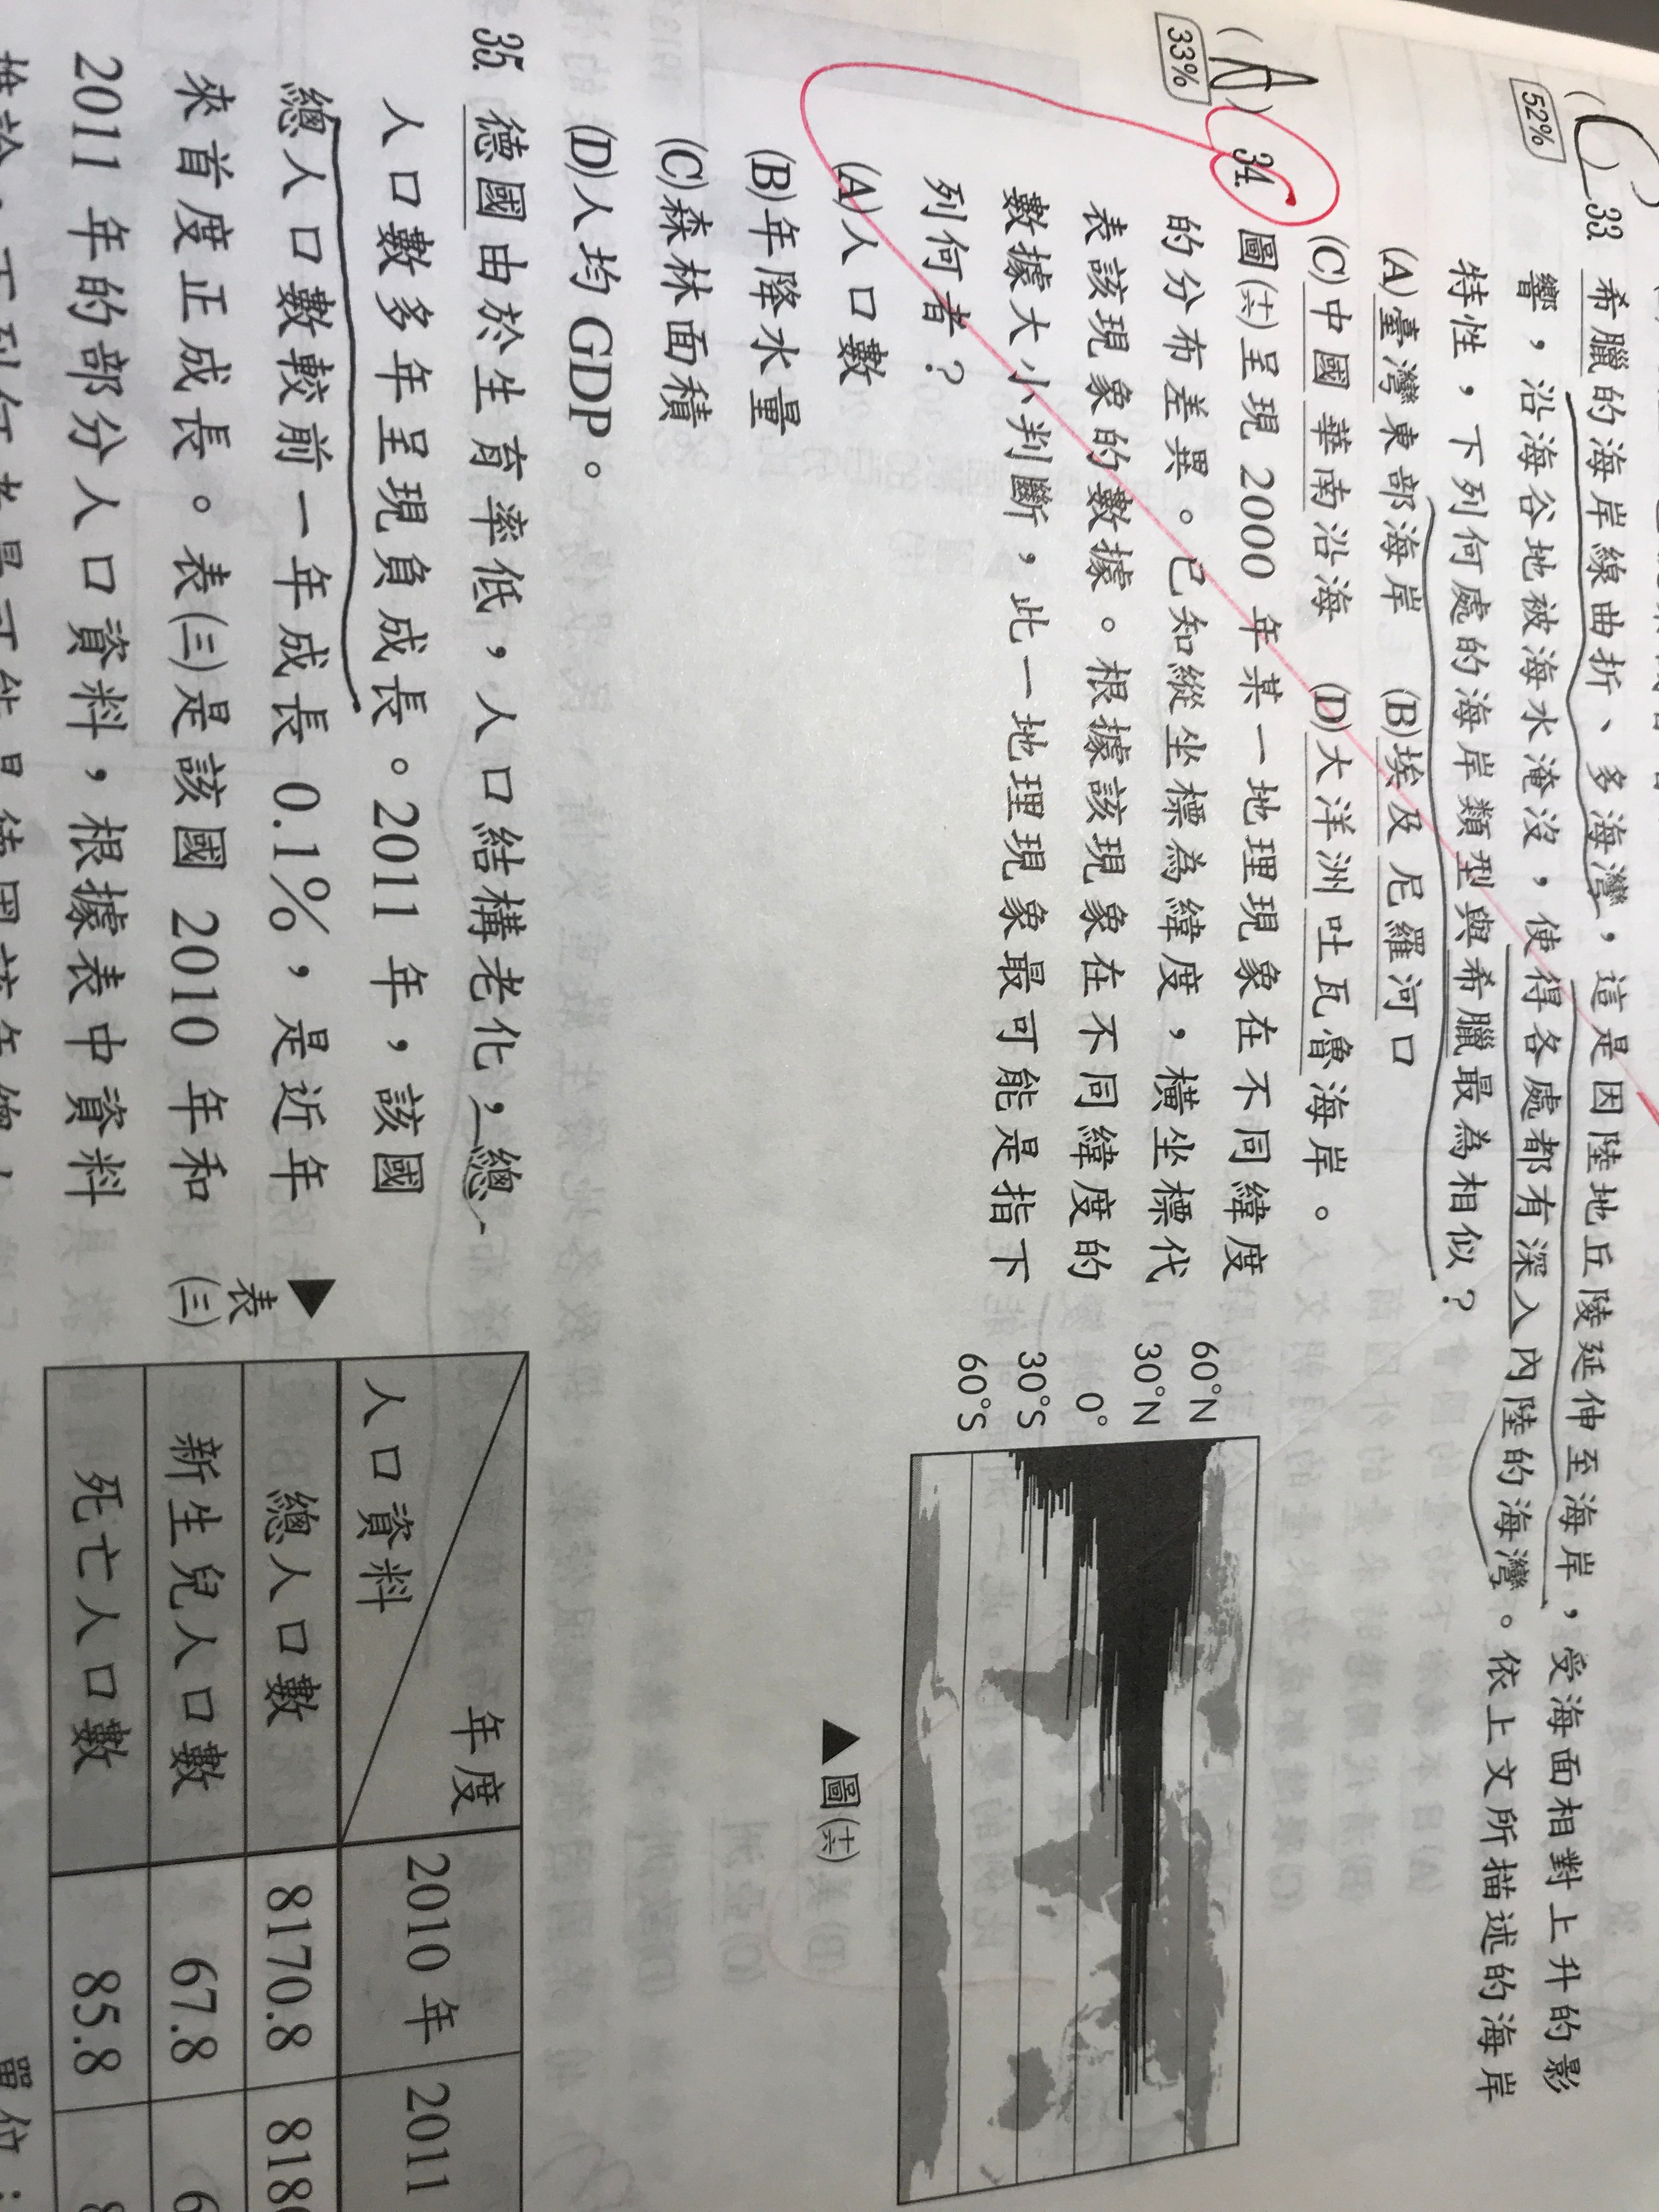 (C)33. 希臘的海岸線曲折、多海灣，這是因陸地丘陵延伸至海岸，受海面相對上升的影
52%
響，沿海谷地被海水淹沒，使得各處都有深入內陸的海灣。依上文所描述的海岸
特性，下列何處的海岸類型與希臘最為相似？
(A)臺灣東部海岸 (B)埃及尼羅河口
(C)中國華南沿海 (D)大洋洲吐瓦魯海岸。
(A)34. 圖(共)呈現 2000 年某一地理現象在不同緯度
33%
的分布差異。已知縱坐標為緯度，橫坐標代
表該現象的數據。根據該現象在不同緯度的
數據大小判斷，此一地理現象最可能是指下
列何者？
(A)人口數
(B)年降水量
(C)森林面積
(D)人均 GDP。
60°N
30°N
0°
30°S
60°S
▲圖(共)
35. 德國由於生育率低，人口結構老化，總
人口數多年呈現負成長。2011 年，該國
總人口數較前一年成長 0.1%，是近年
來首度正成長。表(三)是該國 2010 年和
2011 年的部分人口資料，根據表中資料
▲表(三)
單位：
年度 2010 年 2011
人口資料
總人口數 8170.8
新生兒人口數 67.8
死亡人口數 85.8